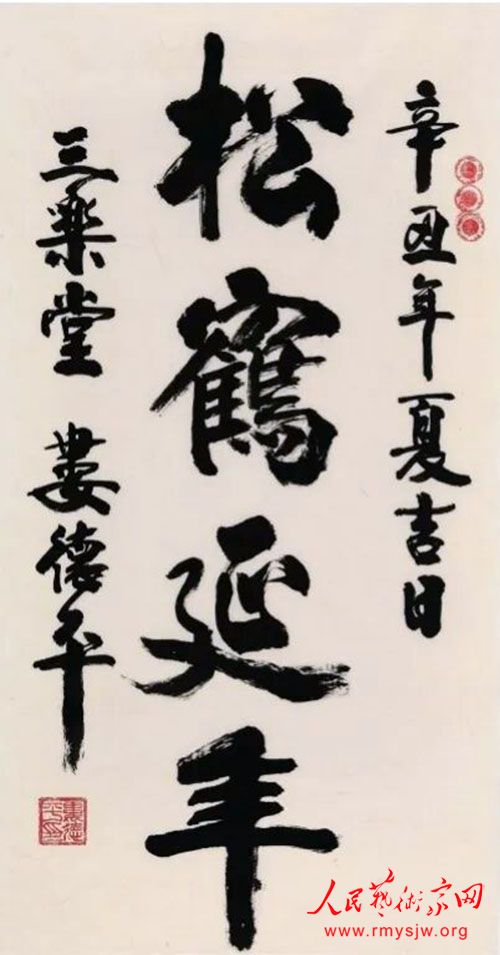 辛丑年夏吉日
松鶴延年
三樂堂 婁德平
人民藝術家网
www.rmysjw.org